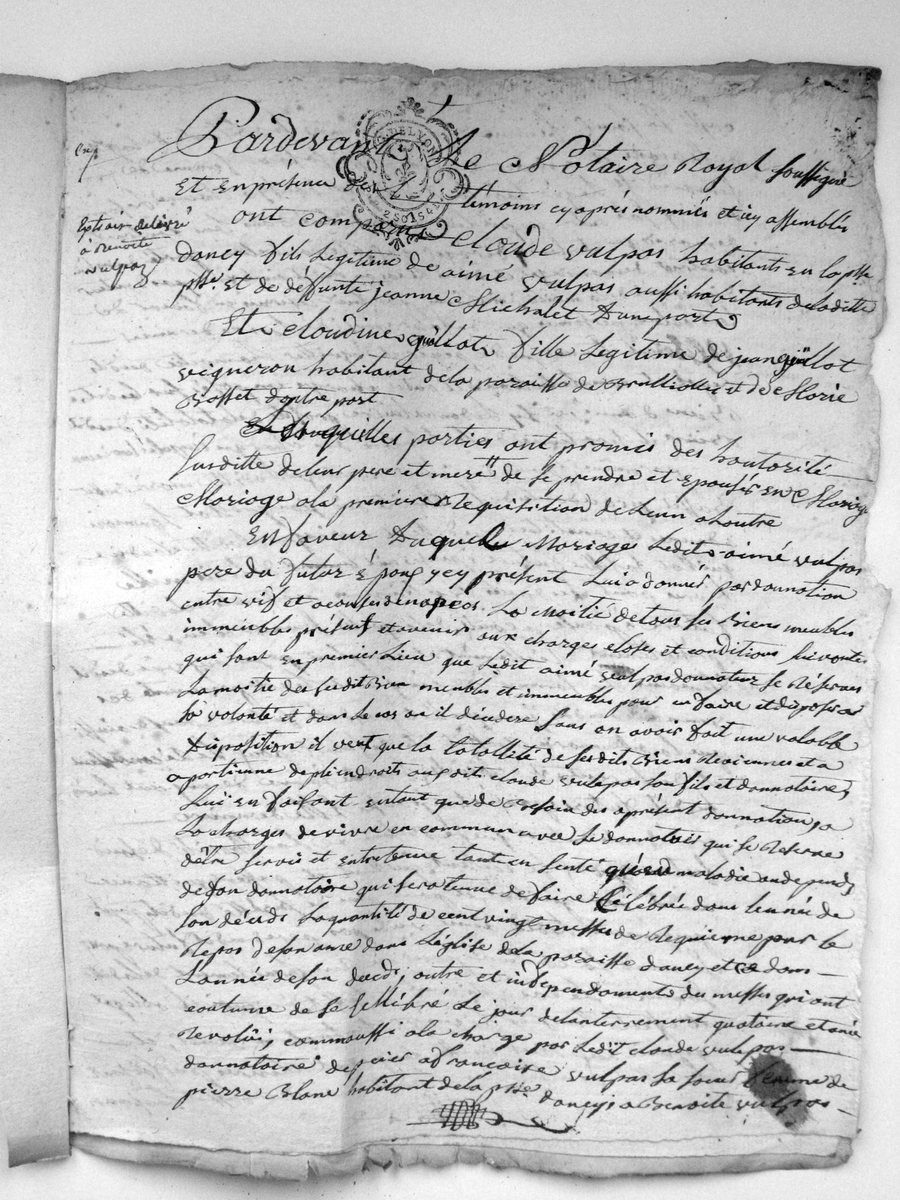 Pardevant Le Notaire Royal soussigné
Et en présence de témoins cy après nommés et icy assemblés
Extrait delivré
à Benoite
vulpas
ont comparus Claude vulpas habitants en la psse
dancy fils Legitime de aimé vulpas aussi habitants de laditte
psse. et de deffunte jeanne Michalet dune part
Et claudine guillot fille Legitime de jean guillot
vigneron habitant de la paroisse de Brulliolle et de Marie
Basset dautre part
Lesquelles parties ont promis des hautorité
susditte de leur pere et mere de se prendre et Epouser en Mariage
Mariage a la premiere Requisition de Lun a Lautre
En faveur duquel Mariage Ledit aimé vulpas
pere du futur épous ycy présent Lui a donnée par donnation
entre vif et a cause de nopces La Moitié de tous ses Biens meubles
immeubles présent et avenir aux charges closes et conditions suivantes
qui sont en premier Lieu que Ledit aimé vulpas donnateur se Réserve
La moitié des susdit Bien meubles et immeubles pour en faire et disposer a
sa volonté et dans le cas ou il décedere sans en avoir fait une valable
disposition il veut que la totallité de sesdits Biens deviennes et a
apartienne de plein droits audit claude vulpas son fils et donnataire
Lui en faisant en tant que de Besoin des apresent donnation, a
La charges de vivre en commun avec Le donnateur qui se Reserve
d'être servis et entretenue tant en senté qu'en maladie au depend
de son donnatoire qui sera tenue de faire Célébrée dans lannée de
son décéds La quantité de cent vingt messes de Requieme pour le
Repos de son ame dans L'église de la paroisse dancy et ce dans
Lannés de son décéds, outre et independament des messes qui ont
coutume de se sellébré Le jour de lanterrement quotaine et anné
Revolüe, comm aussi a la charge par Ledit claude vulpas
donnatoire de païer a francoise vulpas sa soeur femme de
pierre Blanc habitant de la psse dancy, a Benoite vulpas